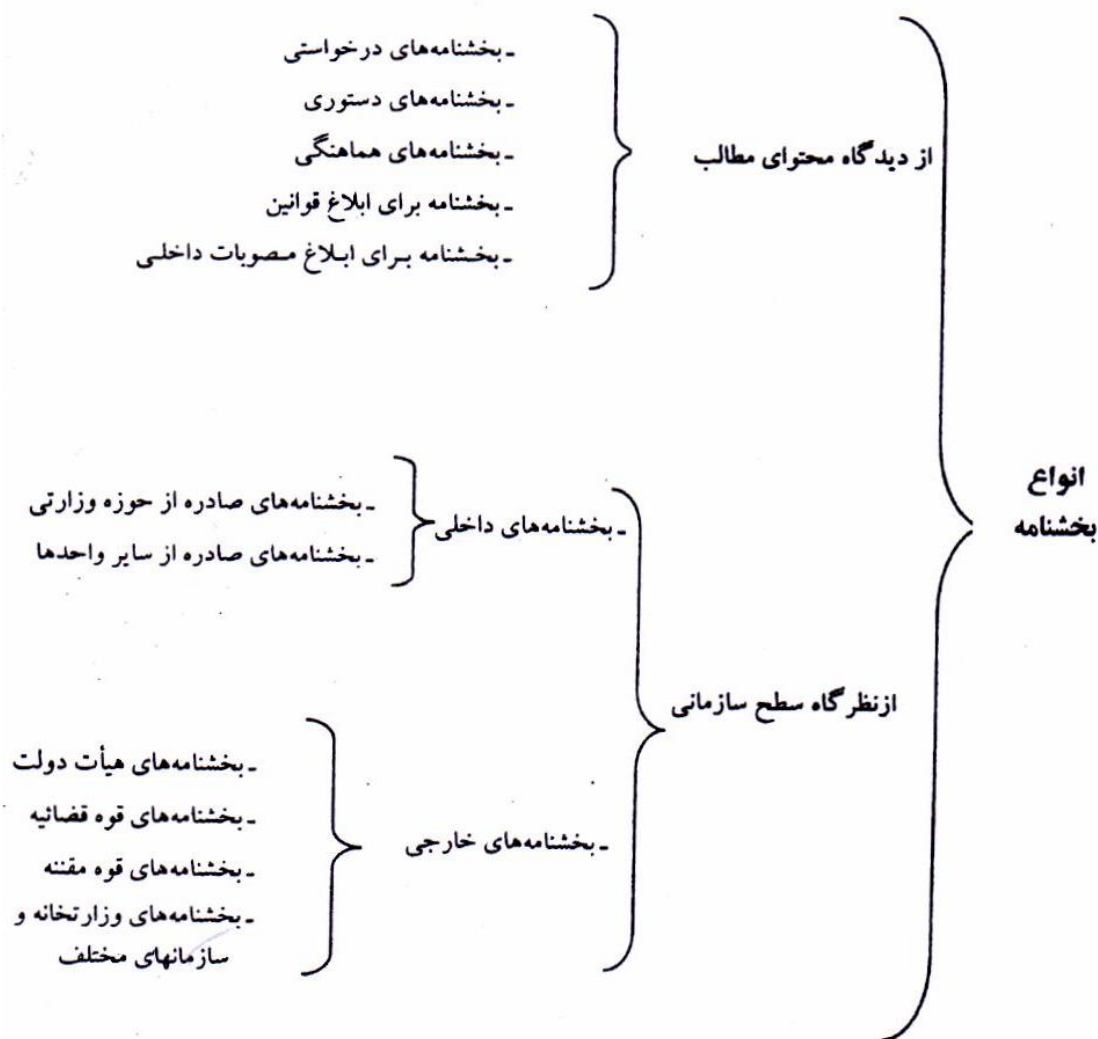 انواع
بخشنامه
از دیدگاه محتوای مطالب
ـ بخشنامه‌های درخواستی
ـ بخشنامه‌های دستوری
ـ بخشنامه‌های هماهنگی
ـ بخشنامه برای ابلاغ قوانین
ـ بخشنامه برای ابلاغ مصوبات داخلی
ازنظرگاه سطح سازمانی
ـ بخشنامه‌های داخلی
ـ بخشنامه‌های صادره از حوزه وزارتی
ـ بخشنامه‌های صادره از سایر واحدها
ـ بخشنامه‌های خارجی
ـ بخشنامه‌های هیأت دولت
ـ بخشنامه‌های قوه قضائیه
ـ بخشنامه‌های قوه مقننه
ـ بخشنامه‌های وزارتخانه و
سازمانهای مختلف